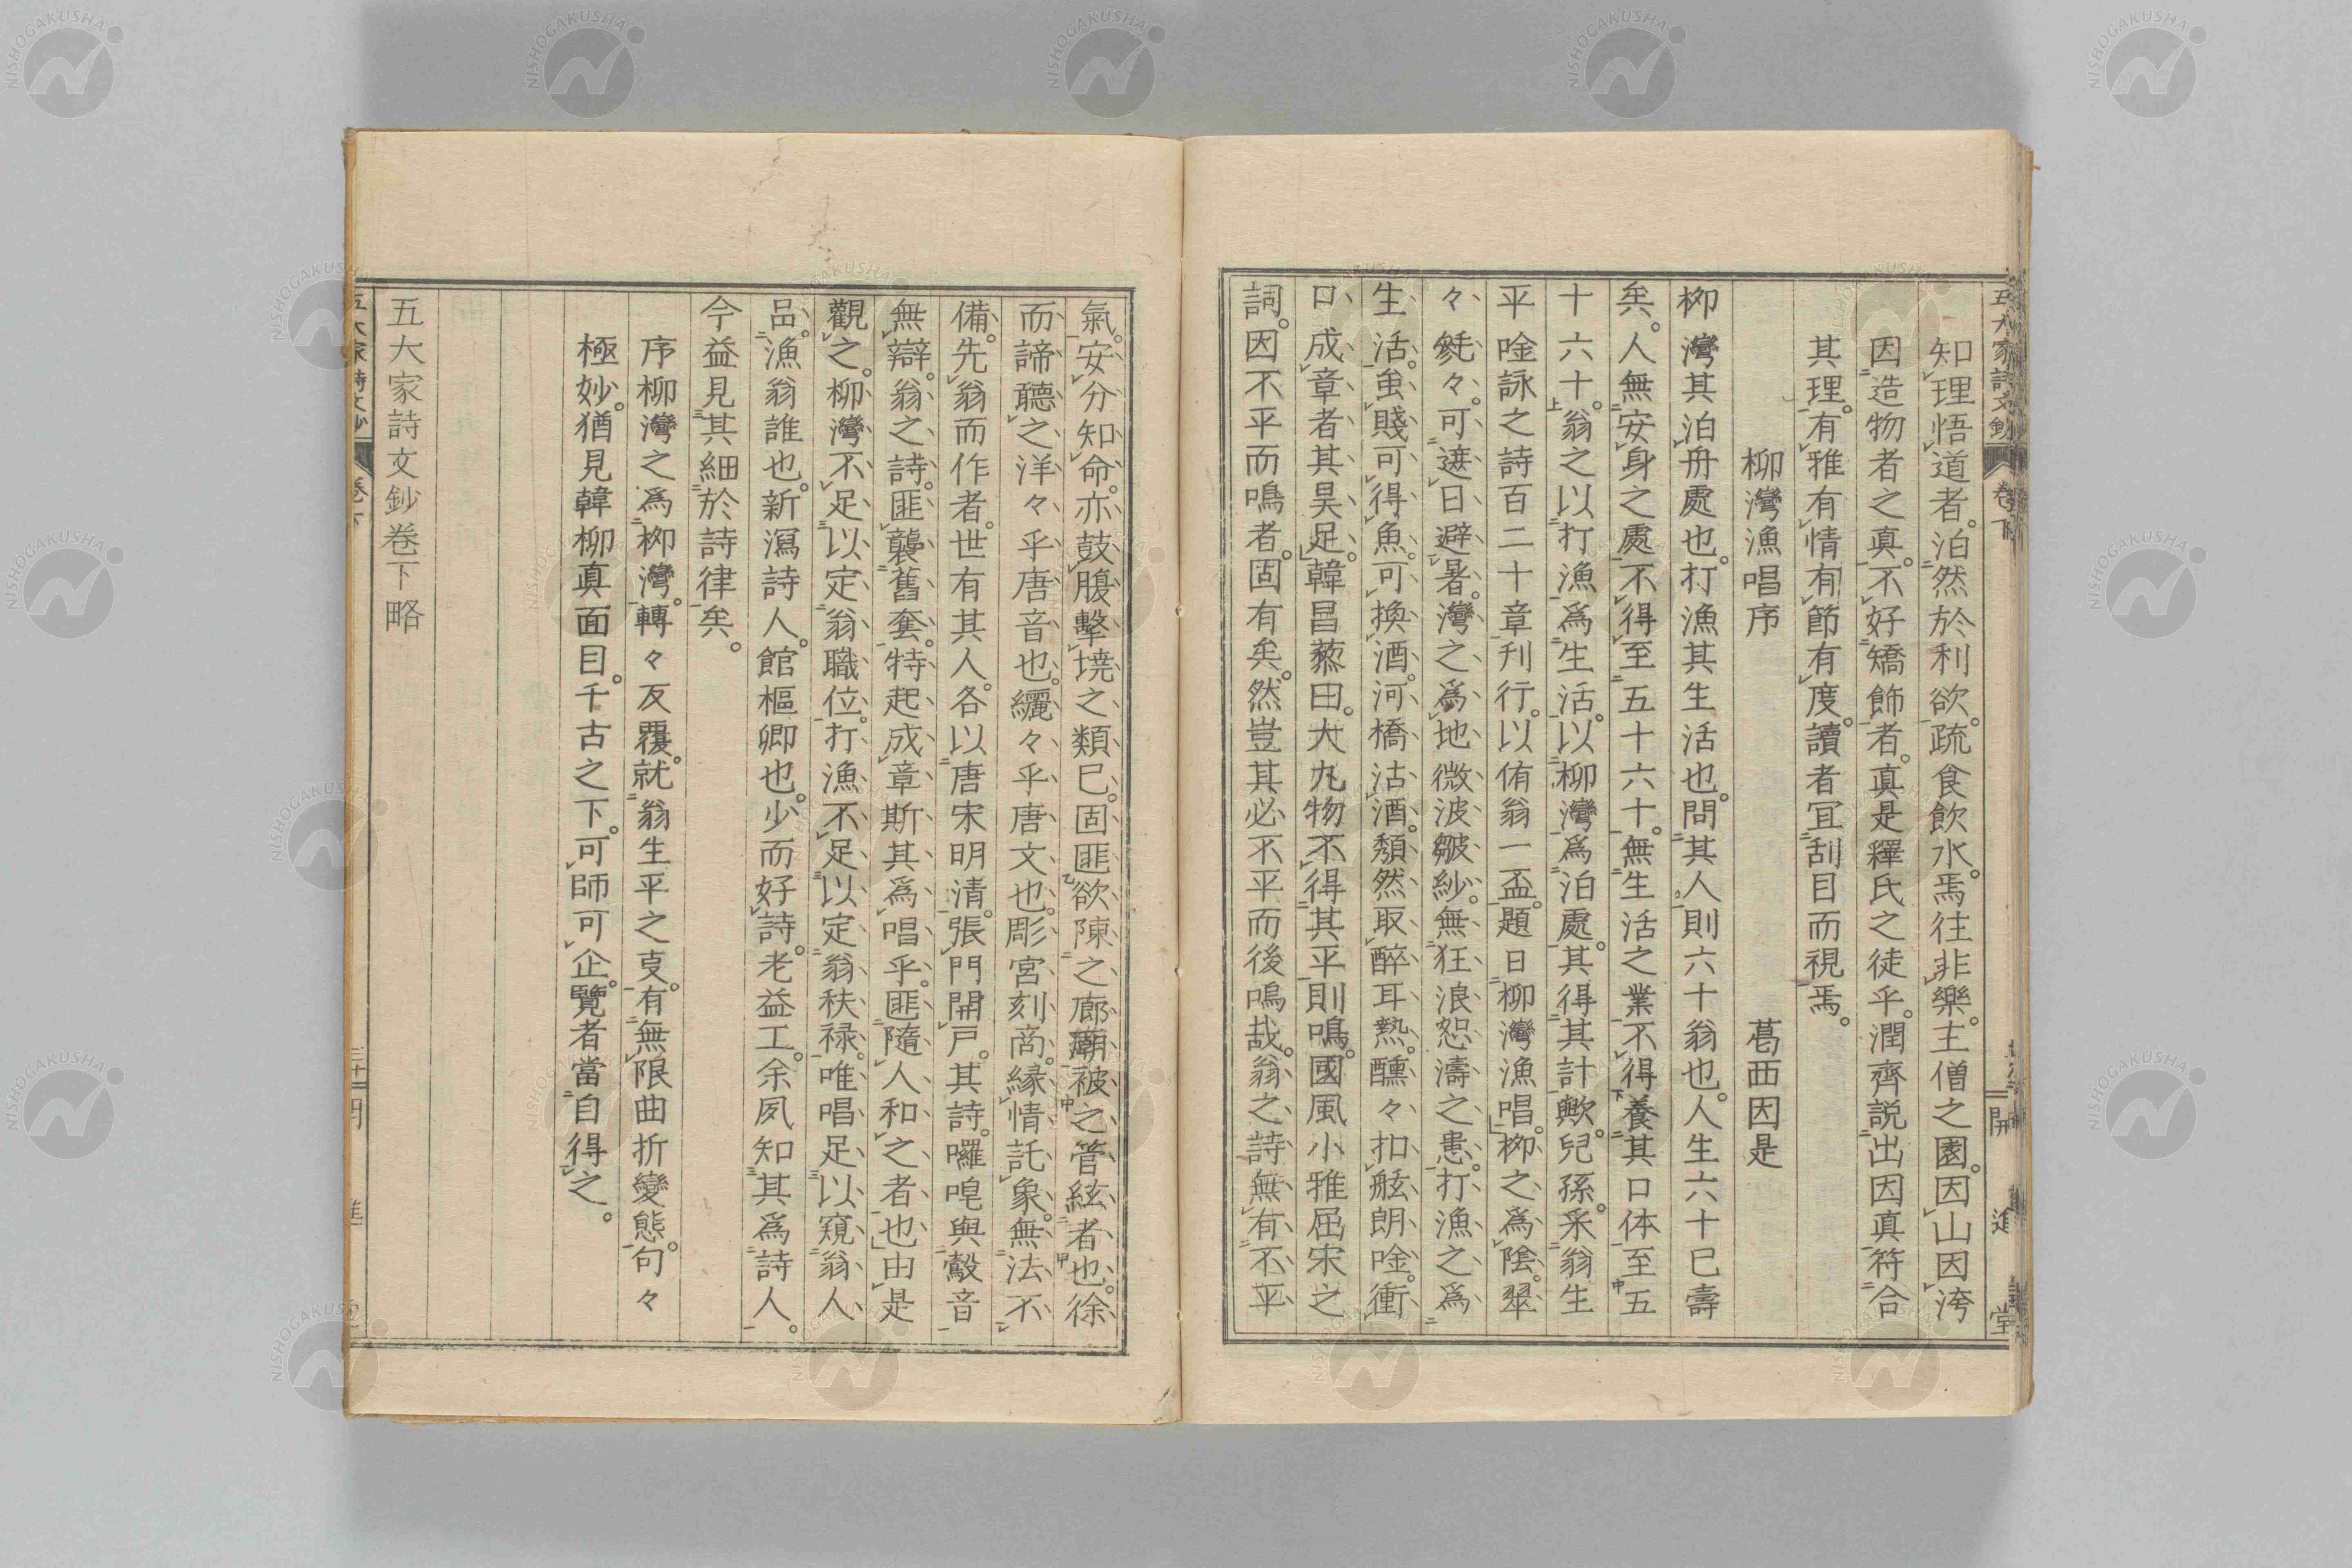 知理悟道者。泊然於利欲。疏食飲水。焉往非樂。主僧之園。因山因洿
因造物者之真。不好矯飾者。真是釋氏之徒乎。潤齊説出因真符合
其理。有雅有情有節有度。讀者宜刮目而視焉。
柳灣漁唱序 葛西因是
柳灣其泊舟處也。打漁其生活也。問其人則六十翁也。人生六十已壽
矣。人無安身之處不得至五十六十。無生活之業不得養其口体至五
十六十。翁之以打漁為生活。以柳灣為泊處。其得其計歟。兒孫。采翁生
平唫詠之詩百二十章刋行。以侑翁一盃。題曰柳灣漁唱。柳之為陰。翠
々毿々。可遮日避暑。灣之為地微波皺紗。無狂浪怒濤之患。打漁之為
生活。虽賤可得魚。可換酒。河橋沽酒。頽然取醉耳熱。醺々扣舷朗唫。衝
口成章者其昊足。韓昌黎曰。大凡物不得其平則鳴。國風小雅屈宋之
詞。因不平而鳴者。固有矣。然豈其必不平而後鳴哉。翁之詩無有不平
氣。安分知命。亦鼓腹擊壌之類已。固匪欲陳之廊廟被之管絃者也。徐
而諦聽之洋々乎唐音也。纚々乎唐文也。彫宮刻商。縁情託象。無法不
備。先翁而作者。世有其人。各以唐宋明清。張門開戸。其詩。囉唣與鷇音
無辯。翁之詩。匪襲舊套。特起成章斯其為唱乎。匪隨人和之者也。由是
觀之。柳灣不足以定翁職位。打漁不足以定翁秩禄。唯唱足以窺翁人
品。漁翁誰也。新瀉詩人。館樞卿也。少而好詩。老益工。余夙知其為詩人。
今益見其細於詩律矣。
序柳灣之為柳灣。轉々反覆。就翁生平之叓。有無限曲折變態。句々
極妙。猶見韓柳真面目。千古之下。可師可企。覽者當自得之。
五大家詩文鈔卷下略